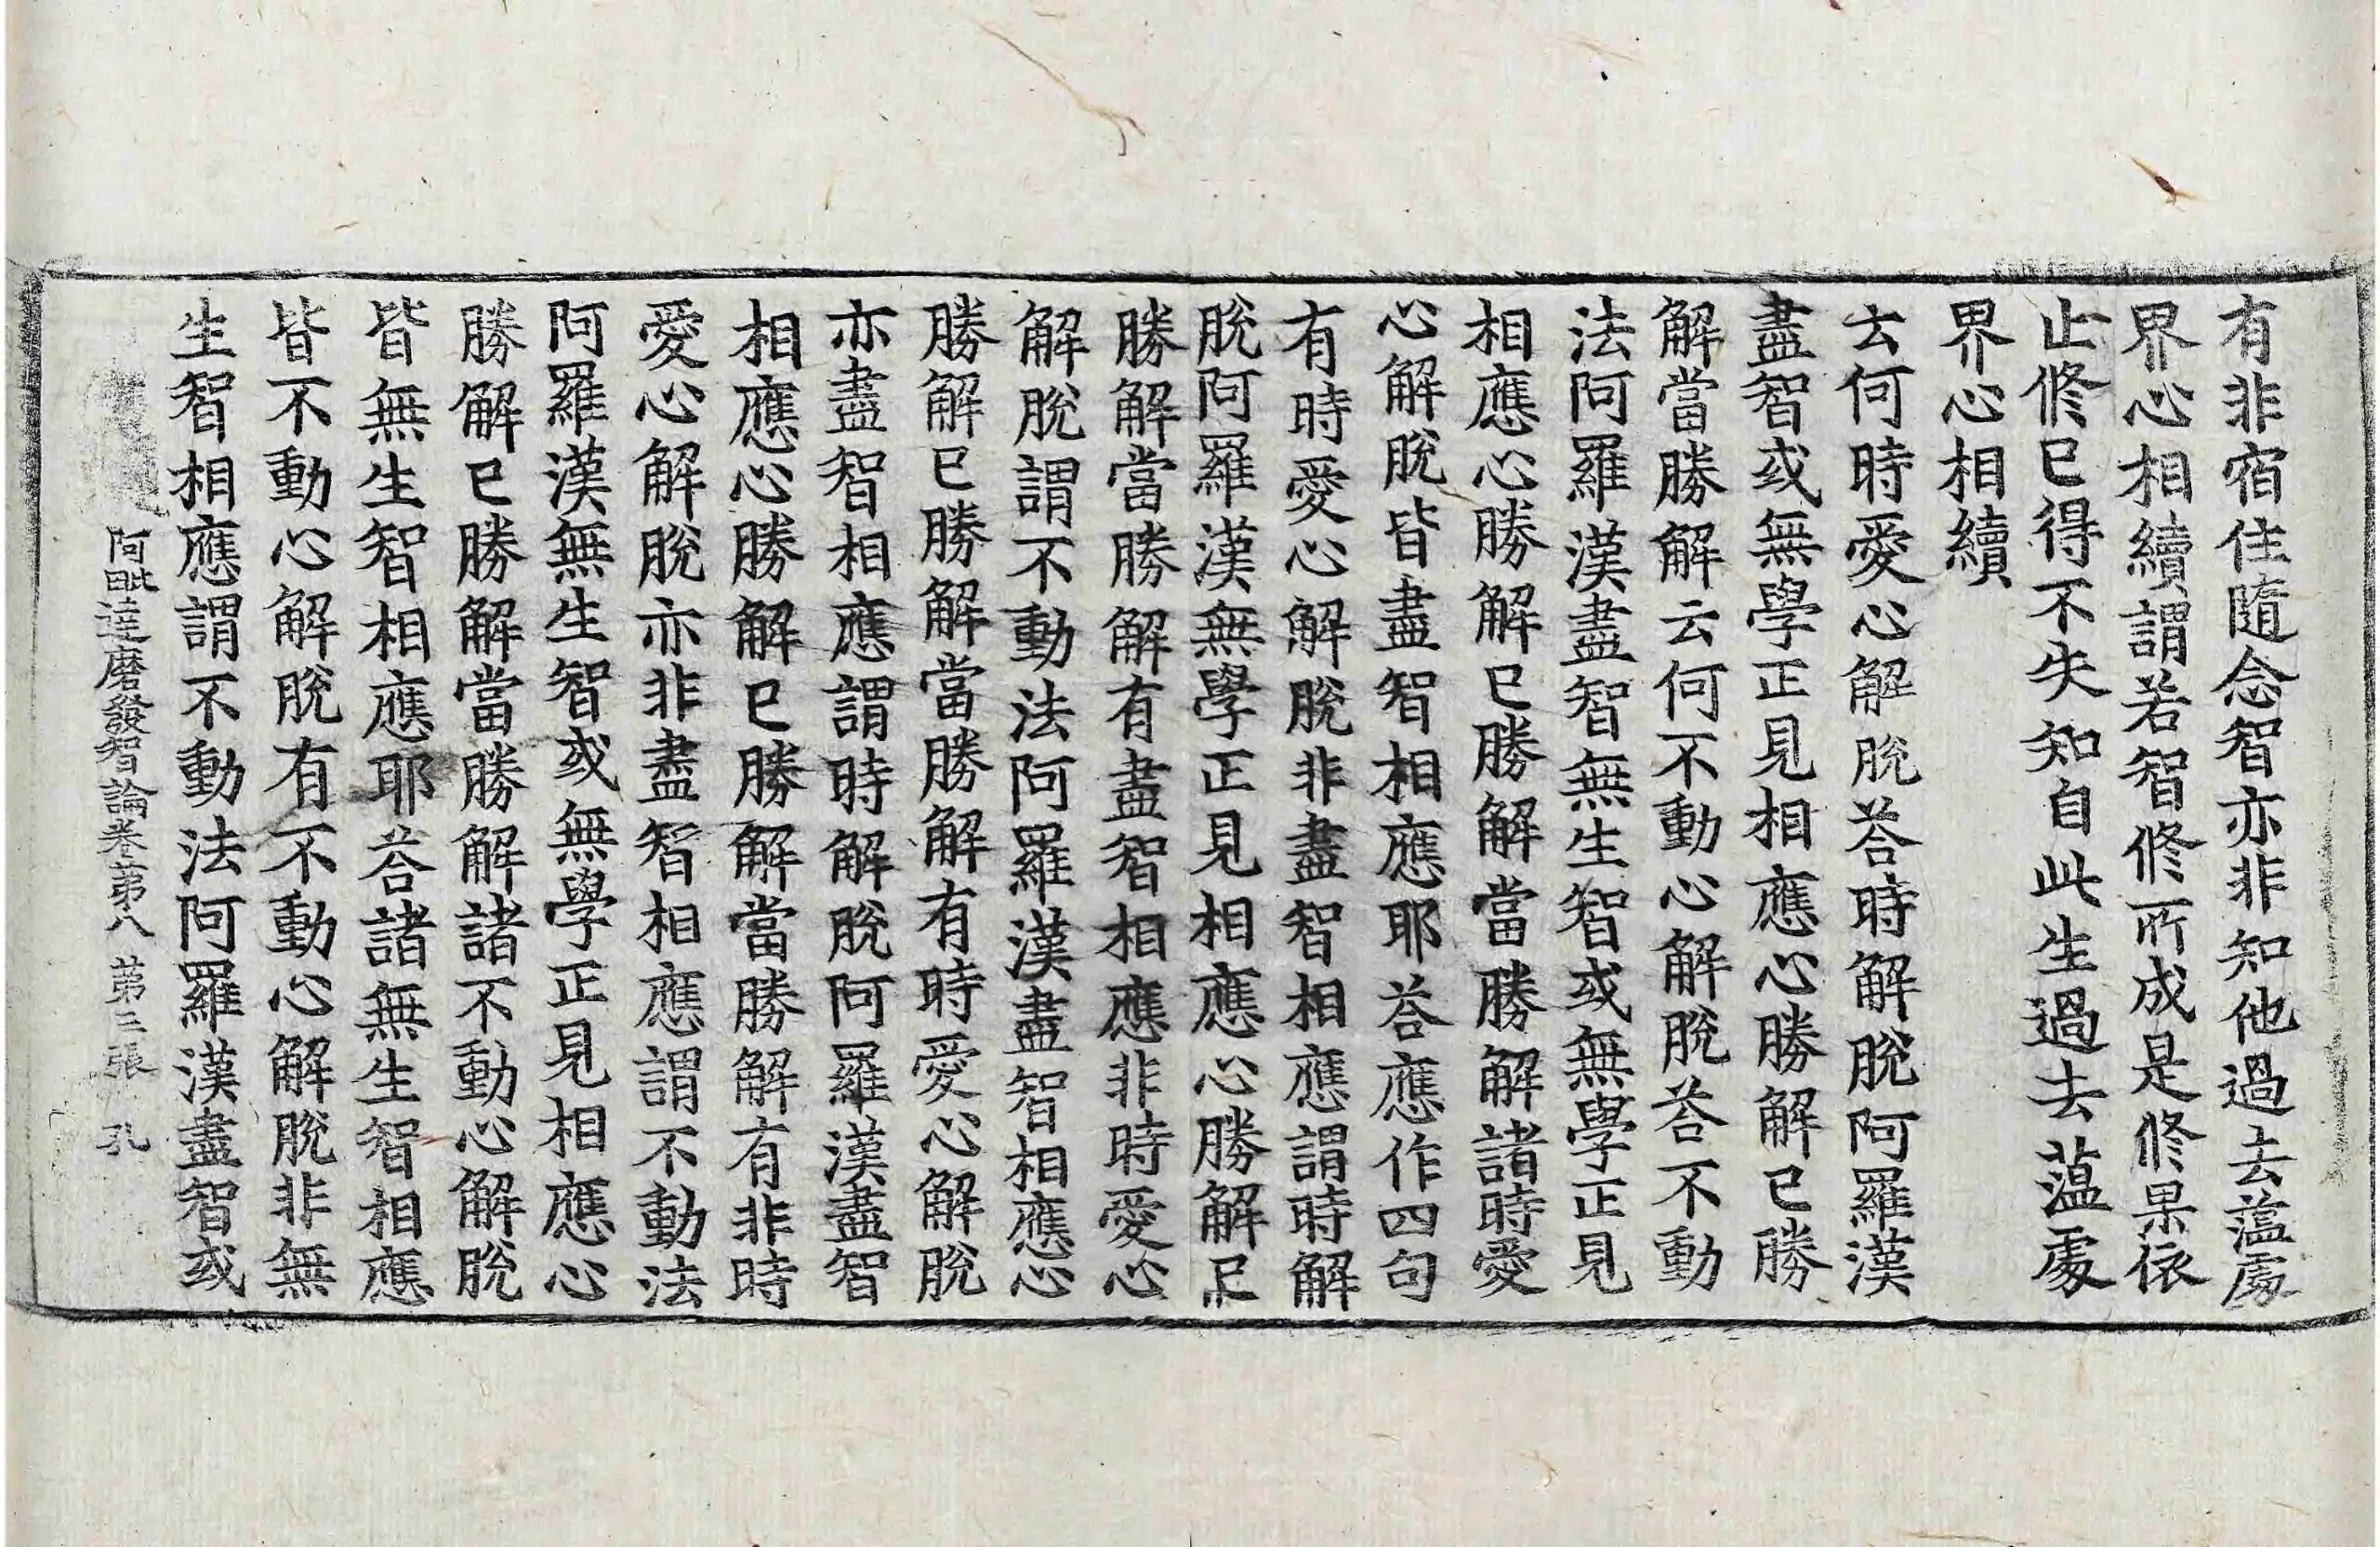 有非宿住隨念智亦非知他過去薀處
界心相續謂若智修所成是修果依
止修已得不失知自此生過去薀處
界心相續
云何時愛心解脫荅時解脫阿羅漢
盡智或無學正見相應心勝解已勝
解當勝解云何不動心解脫荅不動
法阿羅漢盡智無生智或無學正見
相應心勝解已勝解當勝解諸時愛
心解脫皆盡智相應耶荅應作四句
有時愛心解脫非盡智相應謂時解
脫阿羅漢無學正見相應心勝解已
勝解當勝解有盡智相應非時愛心
解脫謂不動法阿羅漢盡智相應心
勝解已勝解當勝解有時愛心解脫
亦盡智相應謂時解脫阿羅漢盡智
相應心勝解已勝解當勝解有非時
愛心解脫亦非盡智相應謂不動法
阿羅漢無生智或無學正見相應心
勝解已勝解當勝解諸不動心解脫
皆無生智相應耶荅諸無生智相應
皆不動心解脫有不動心解脫非無
生智相應謂不動法阿羅漢盡智或
阿毗達磨發智論卷第八 第三張 孔